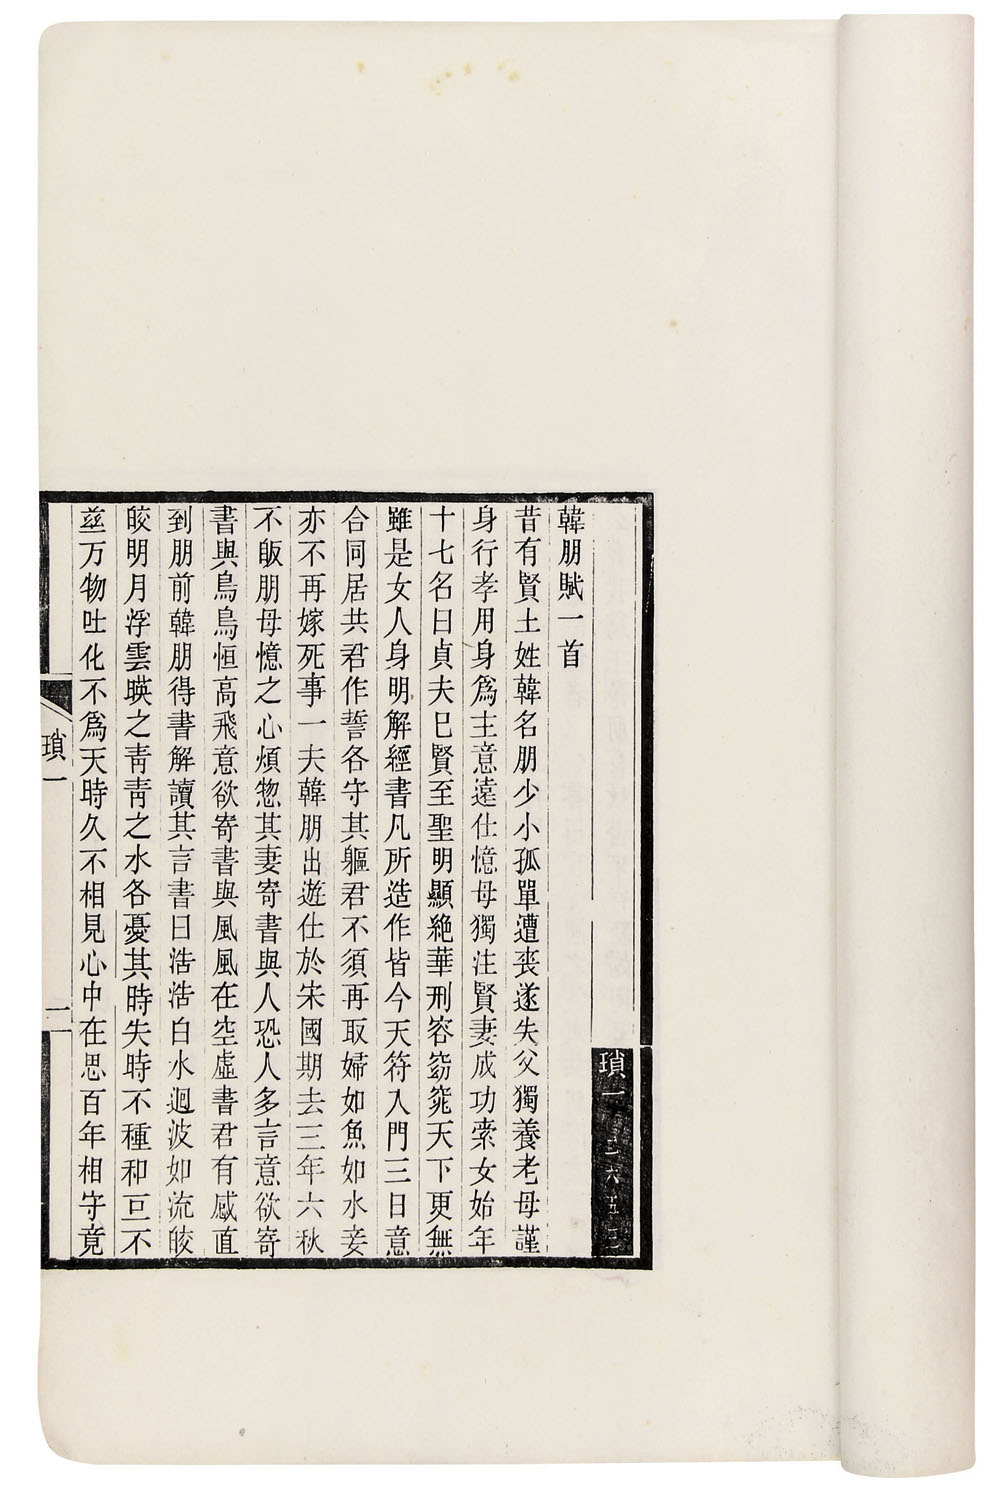 瑣一 二六五三
韓朋賦一首
昔有賢土姓韓名朋少小孤單遭喪遂失父獨養老母謹
身行孝用身爲主意遠仕憶母獨注賢妻成功索女始年
十七名曰貞夫巳賢至聖明顯絶華刑容窈窕天下更無
雖是女人身明解經書凡所造作皆今天符入門三日意
合同居共君作誓各守其軀君不須再取婦如魚如水妾
亦不再嫁死事一夫韓朋出遊仕於宋國期去三年六秋
不皈朋母憶之心煩惣其妻寄書與人恐人多言意欲寄
書與鳥鳥恒高飛意欲寄書與風風在空虛書君有感直
到朋前韓朋得書解讀其言書曰浩浩白水迴波如流皎
皎明月浮雲暎之青青之水各憂其時失時不種和亘不
茲万物吐化不爲天時久不相見心中在思百年相守竟
瑣一
二